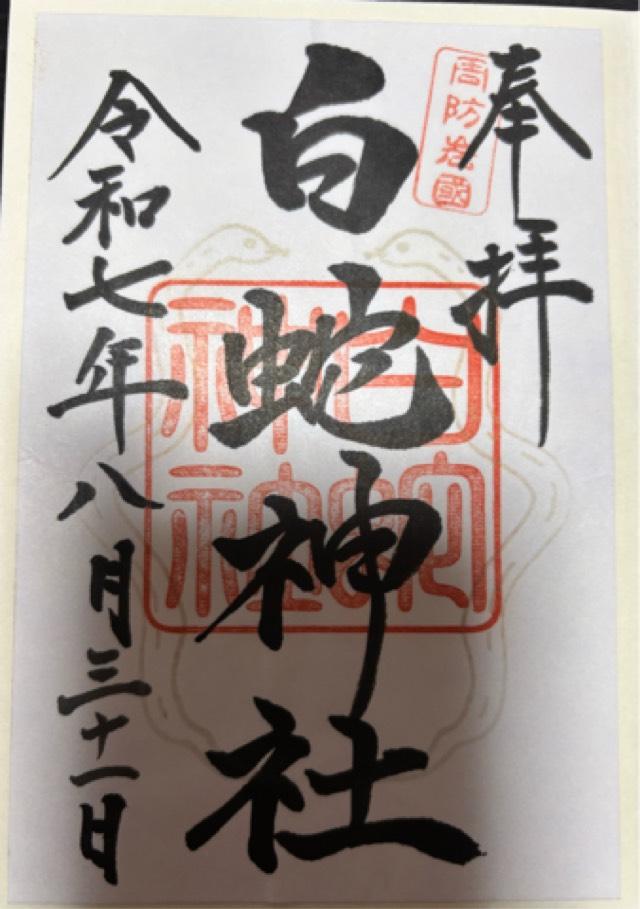 奉拝
周防岩國
白蛇神社
白蛇神社
令和七年八月三十一日